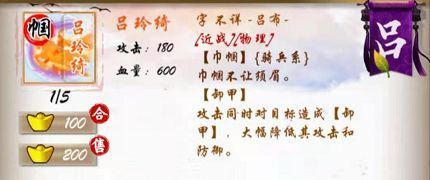 巾帼
吕玲绮
1/5
100
合
200
售
吕玲绮
攻击:180
血量:600
字 不详 -吕布-
[近战][物理]
【巾帼】{骑兵系}
巾帼不让须眉。
【卸甲】
攻击同时对目标造成【卸
甲】,大幅降低其攻击和
防御。
吕